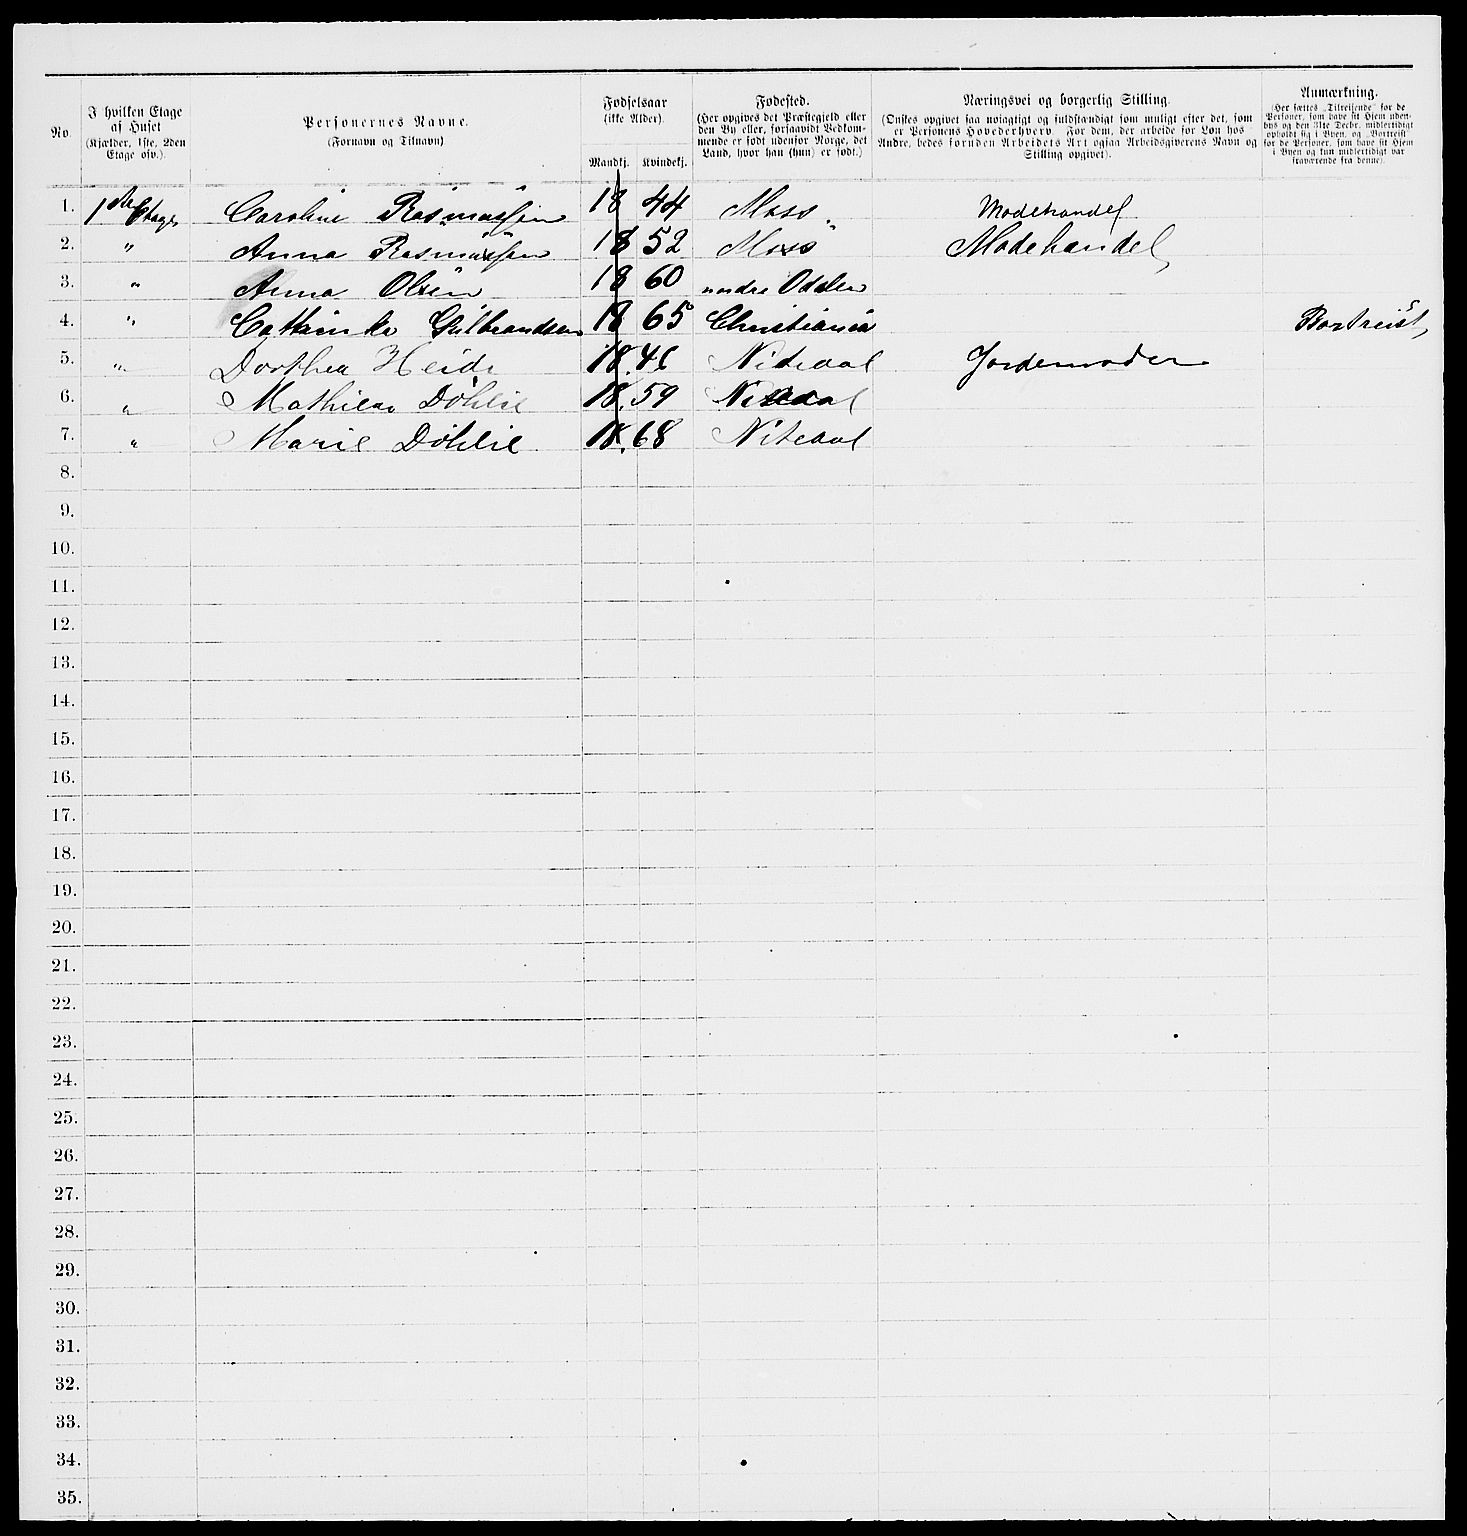 No.
I hvilken Etage af Huset (Kjælder, 1ste, 2den Etage osv.).
Personernes Navne. (Fornavn og Tilnavn)
Fødselsaar (ikke Alder). Mandkj. Kvindekj.
Fødested. (Her opgives det Præstegjeld eller den By eller, forsaavidt Vedkommende er født udenfor Norge, det Land, hvor han (hun) er født.)
Næringsvei og borgerlig Stilling. (Ønskes opgivet saa nøiagtigt og fuldstændigt som muligt efter det, som er Personens Hovederhverv. For dem, der arbeide for Løn hos Andre, bedes foruden Arbeidets Art ogsaa Arbeidsgiverens Navn og Stilling opgivet).
Anmærkning. (Her sættes „Tilreisende" for de Personer, som have sit Hjem udenbys og den 31te Decbr. midlertidigt opholdt sig i Byen, og „Bortreist" for de Personer, som have sit Hjem i Byen og kun midlertidigt var fraværende fra denne).
1. 1ste Etage Caroline Rasmussen 18 44 Moss. Modehandel
2. " Anna Rasmussen 18 52 Moss Modehandel
3. " Anna Olsen 18 60 nordre Odalen
4. " Cathinka Gulbrandsen 18 65 Christiania Bortreist
5. " Dorthea Heide 18 46 Nitedal Jordemoder
6. " Mathilde Døhlie 18 59 Nitedal
7. " Marie Døhlie 18 68 Nitedal
8.
9.
10.
11.
12.
13.
14.
15.
16.
17.
18.
19.
20.
21.
22.
23.
24.
25.
26.
27.
28.
29.
30.
31.
32.
33.
34.
35.